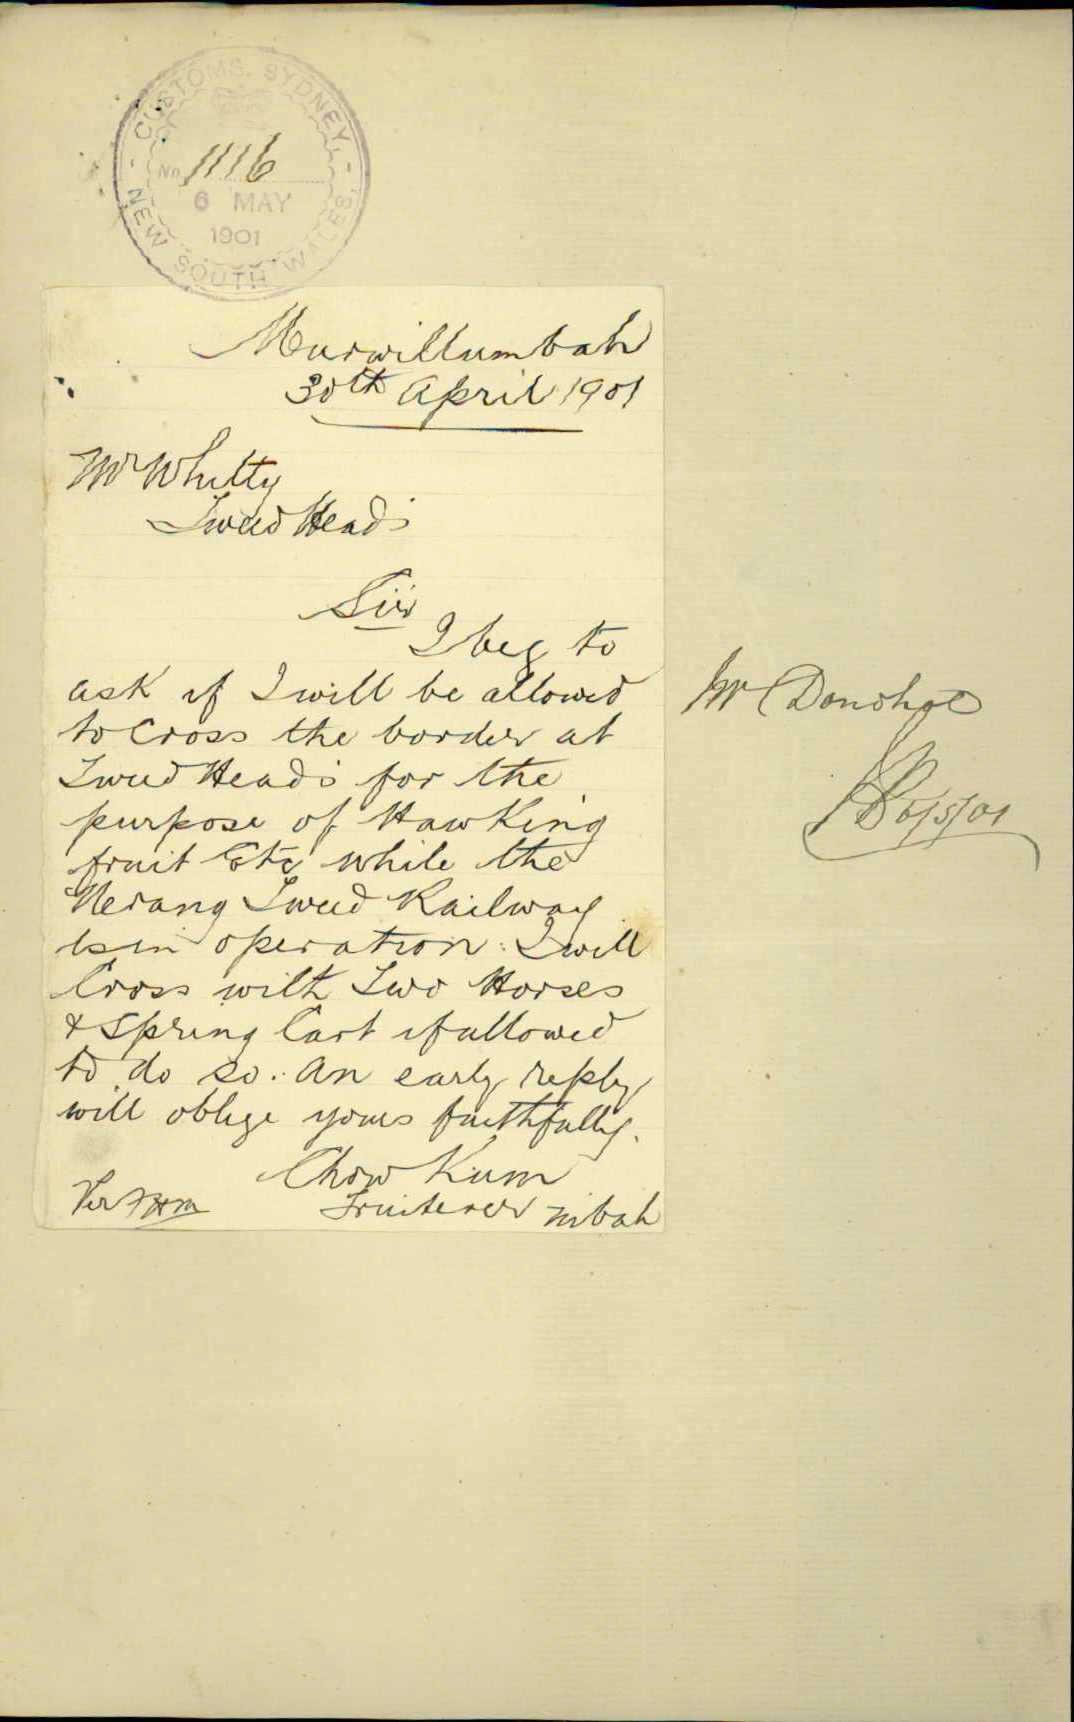 CUSTOMS. SYDNEY.
No. 1116
6 MAY
1901
NEW SOUTH WALES.
Murwillumbah
30th April 1901
Mr Whitty
Tweed Heads
Sir
I beg to
ask if I will be allowed
to Cross the border at
Tweed Heads for the
purpose of Hawking
fruit Etc while the
Nerang Tweed Railway
is in operation. I will
Cross with Two Horses
& Spring Cart if allowed
to do so. An early reply
will oblige yours faithfully.
Chow Kum
Per
Fruiterer Mbah
Mr Donohoe
6/5/01